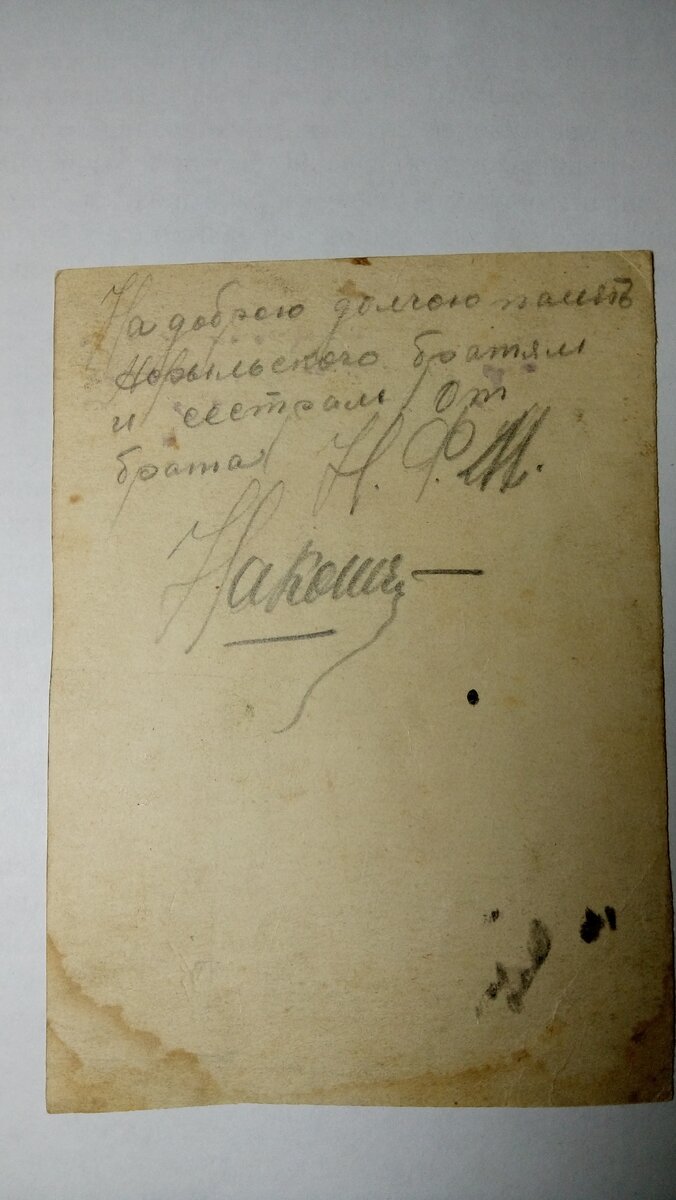 На доброю долгою память
Норыльского братям
и сестрам От
брата Н. Ф. М.